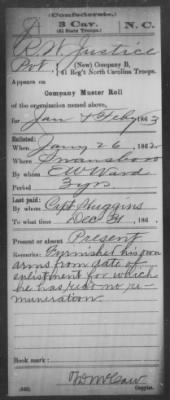 (Confederate.)
J 3 Cav. N. C.
(41 State Troops.)
R. W. Justice
Pvt., (New) Company B,
41 Reg't North Carolina Troops.
Appears on
Company Muster Roll
of the organization named above,
for Jan & Feby, 1863
Enlisted:
When Jany 26, 1862
Where Swansboro
By whom E W Ward
Period 3 yrs
Last paid:
By whom Capt Huggins
To what time Dec 31, 186
Present or absent Present
Remarks: Furnished his own
arms from date of
enlistment for which
he has recd no re-
muneration.
Book mark:
(642) Copyist.